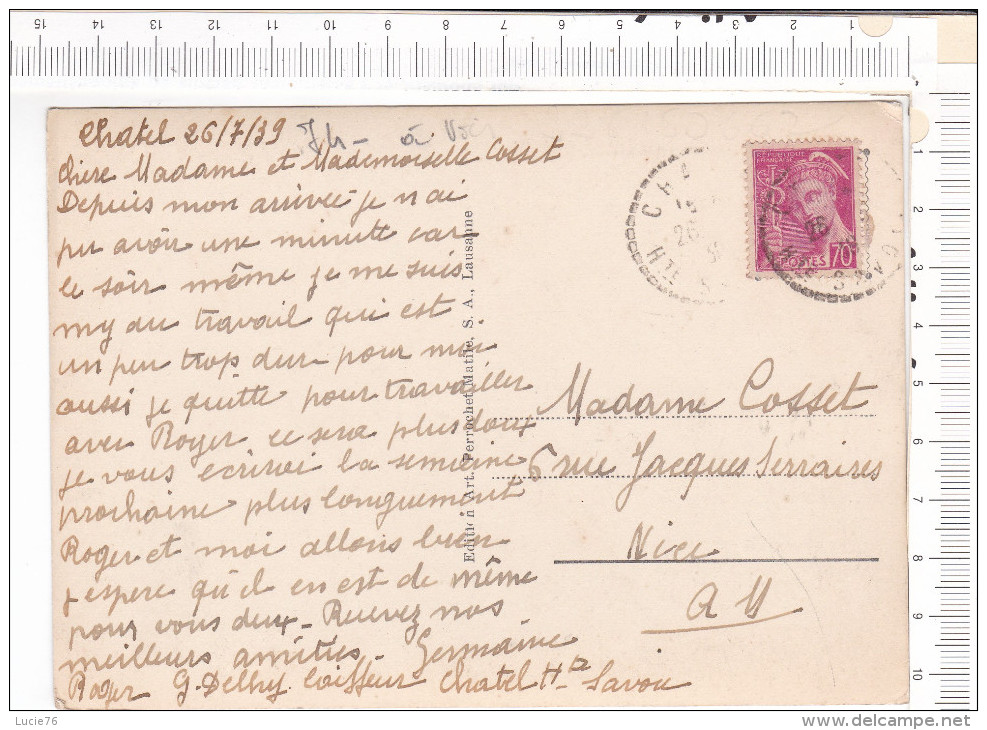 Chatel 26/7/39
Chère Madame et Mademoiselle Cosset
Depuis mon arrivée je n ai
pu avoir une minute car
le soir même je me suis
my au travail qui est
un peu trop dur pour moi
aussi je quitte pour travailler
avec Roger ce sera plus doux
je vous écrirai la semaine
prochaine plus longuement
Roger et moi allons bien
j espère qu'il en est de même
pour vous deux_ Recevez nos
meilleurs amitiés_ Germaine
Roger G. Delhy Coiffeur Chatel Hte Savoie
Edition Art. Perrochet-Matile, S. A., Lausanne
REPUBLIQUE FRANÇAISE
POSTES 70
Madame Cosset
6 rue Jacques Serraires
Nice
A M
Lucie76
www.delcampe.net